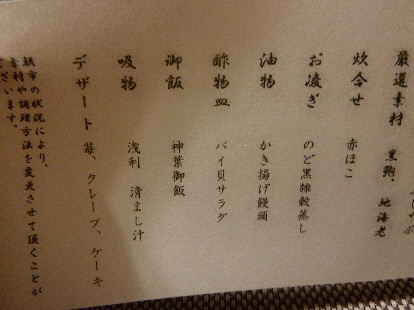 厳選素材 黒鮑、地海老
炊合せ 赤ほこ
お凌ぎ のど黒雑穀蒸し
油物 かき揚げ饅頭
酢物皿 バイ貝サラダ
御飯 神葉御飯
吸物 浅利 清まし汁
デザート 苺、クレープ、ケーキ
朝市の状況により、
素材や調理方法を変更させて頂くことが
ございます。